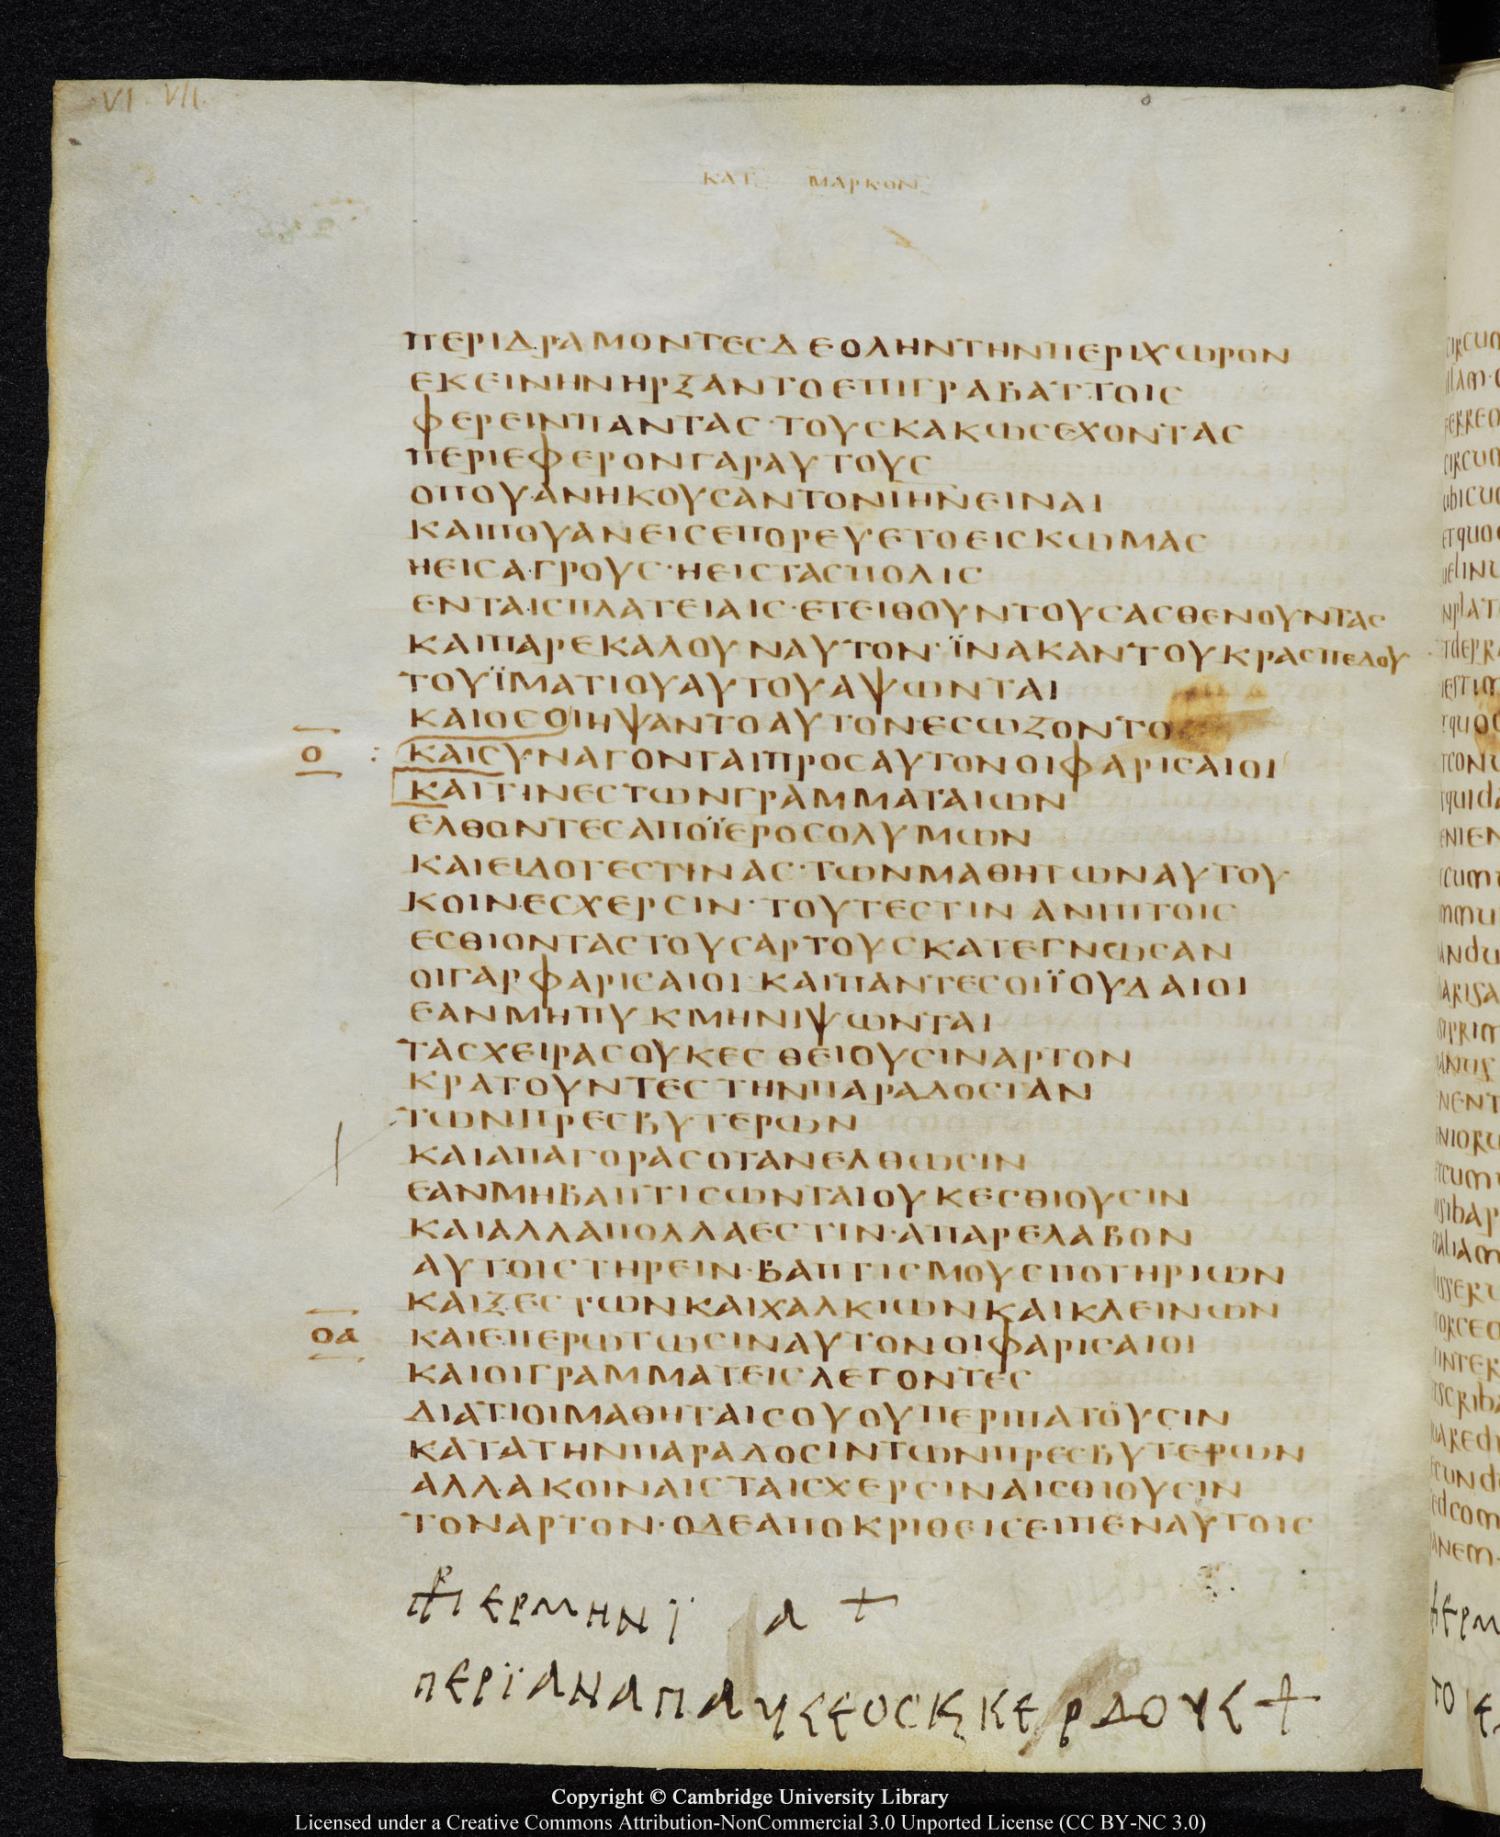 VI VII
ΚΑΤ ΜΑΡΚΟΝ
ΠΕΡΙΔΡΑΜΟΝΤΕСΔΕΟΛΗΝΤΗΝΠΕΡΙΧωΡΟΝ
ΕΚΕΙΝΗΝΗΡΞΑΝΤΟΕΠΙΓΡΑΒΑΤΤΟΙС
ΦΕΡΕΙΝΠΑΝΤΑС·ΤΟΥСΚΑΚωСΕΧΟΝΤΑС
ΠΕΡΙΕΦΕΡΟΝΓΑΡΑΥΤΟΥС
ΟΠΟΥΑΝΗΚΟΥСΑΝΤΟΝΙΗΝΕΙΝΑΙ
ΚΑΙΠΟΥΑΝΕΙСΕΠΟΡΕΥΕΤΟΕΙСΚωΜΑС
ΗΕΙСΑΓΡΟΥС·ΗΕΙСΤΑСΠΟΛΙС
ΕΝΤΑΙСΠΛΑΤΕΙΑΙС·ΕΤΕΙΘΟΥΝΤΟΥСΑСΘΕΝΟΥΝΤΑС
ΚΑΙΠΑΡΕΚΑΛΟΥΝΑΥΤΟΝ·ΪΝΑΚΑΝΤΟΥΚΡΑСΠΕΔΟΥ
ΤΟΥΪΜΑΤΙΟΥΑΥΤΟΥΑΨωΝΤΑΙ
ΚΑΙΟСΟΙΗΨΑΝΤΟΑΥΤΟΝΕСωΖΟΝΤΟ
Ο : ΚΑΙСΥΝΑΓΟΝΤΑΙΠΡΟСΑΥΤΟΝΟΙΦΑΡΙСΑΙΟΙ
ΚΑΙΤΙΝΕСΤωΝΓΡΑΜΜΑΤΑΙωΝ
ΕΛΘΟΝΤΕСΑΠΟΪΕΡΟСΟΛΥΜωΝ
ΚΑΙΕΙΔΟΤΕСΤΙΝΑС·ΤωΝΜΑΘΗΤωΝΑΥΤΟΥ
ΚΟΙΝΕСΧΕΡСΙΝ·ΤΟΥΤΕСΤΙΝ ΑΝΙΠΤΟΙС
ΕСΘΙΟΝΤΑСΤΟΥСΑΡΤΟΥСΚΑΤΕΓΝωСΑΝ
ΟΙΓΑΡΦΑΡΙСΑΙΟΙ·ΚΑΙΠΑΝΤΕСΟΙΪΟΥΔΑΙΟΙ
ΕΑΝΜΗΠΥΚΜΗΝΙΨωΝΤΑΙ
ΤΑСΧΕΙΡΑСΟΥΚΕСΘΕΙΟΥСΙΝΑΡΤΟΝ
ΚΡΑΤΟΥΝΤΕСΤΗΝΠΑΡΑΔΟСΙΑΝ
ΤωΝΠΡΕСΒΥΤΕΡωΝ
ΚΑΙΑΠΑΓΟΡΑСΟΤΑΝΕΛΘωСΙΝ
ΕΑΝΜΗΒΑΠΤΙСωΝΤΑΙΟΥΚΕСΘΙΟΥСΙΝ
ΚΑΙΑΛΛΑΠΟΛΛΑΕСΤΙΝ·ΑΠΑΡΕΛΑΒΟΝ
ΑΥΤΟΙСΤΗΡΕΙΝ·ΒΑΠΤΙСΜΟΥСΠΟΤΗΡΙωΝ
ΚΑΙΞΕСΤωΝΚΑΙΧΑΛΚΙωΝΚΑΙΚΛΕΙΝωΝ
ΟΑ ΚΑΙΕΠΕΡωΤωСΙΝΑΥΤΟΝΟΙΦΑΡΙСΑΙΟΙ
ΚΑΙΟΙΓΡΑΜΜΑΤΕΙСΛΕΓΟΝΤΕС
ΔΙΑΤΙΟΙΜΑΘΗΤΑΙСΟΥΟΥΠΕΡΙΠΑΤΟΥСΙΝ
ΚΑΤΑΤΗΝΠΑΡΑΔΟСΙΝΤωΝΠΡΕСΒΥΤΕΡωΝ
ΑΛΛΑΚΟΙΝΑΙСΤΑΙСΧΕΡСΙΝΑΙСΘΙΟΥСΙΝ
ΤΟΝΑΡΤΟΝ·ΟΔΕΑΠΟΚΡΙΘΕΙСΕΙΠΕΝΑΥΤΟΙС
ΕΡΜΗΝΪ Α +
ΠΕΡΪΑΝΑΠΑΥСΕΟСΚϚΚΕΡΔΟΥС+
Copyright © Cambridge University Library
Licensed under a Creative Commons Attribution-NonCommercial 3.0 Unported License (CC BY-NC 3.0)